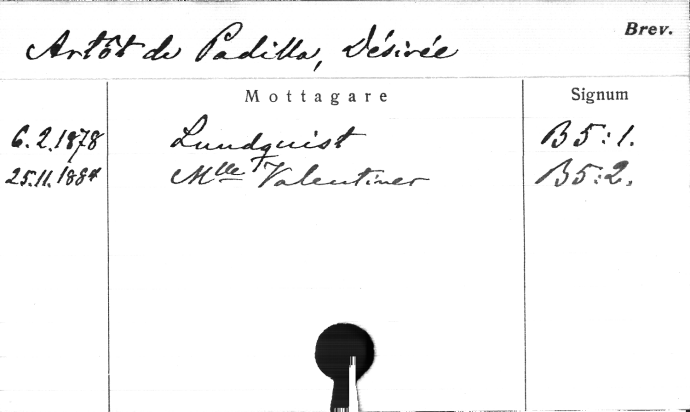 Brev.
Artôt de Padilla, Désirée
Mottagare Signum
6.2.1878 Lundquist B5:1.
25.11.1884 Mlle Valentiner B5:2.